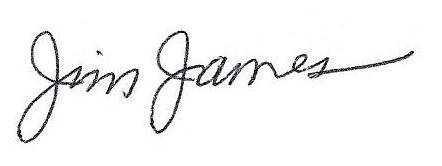 Jim James